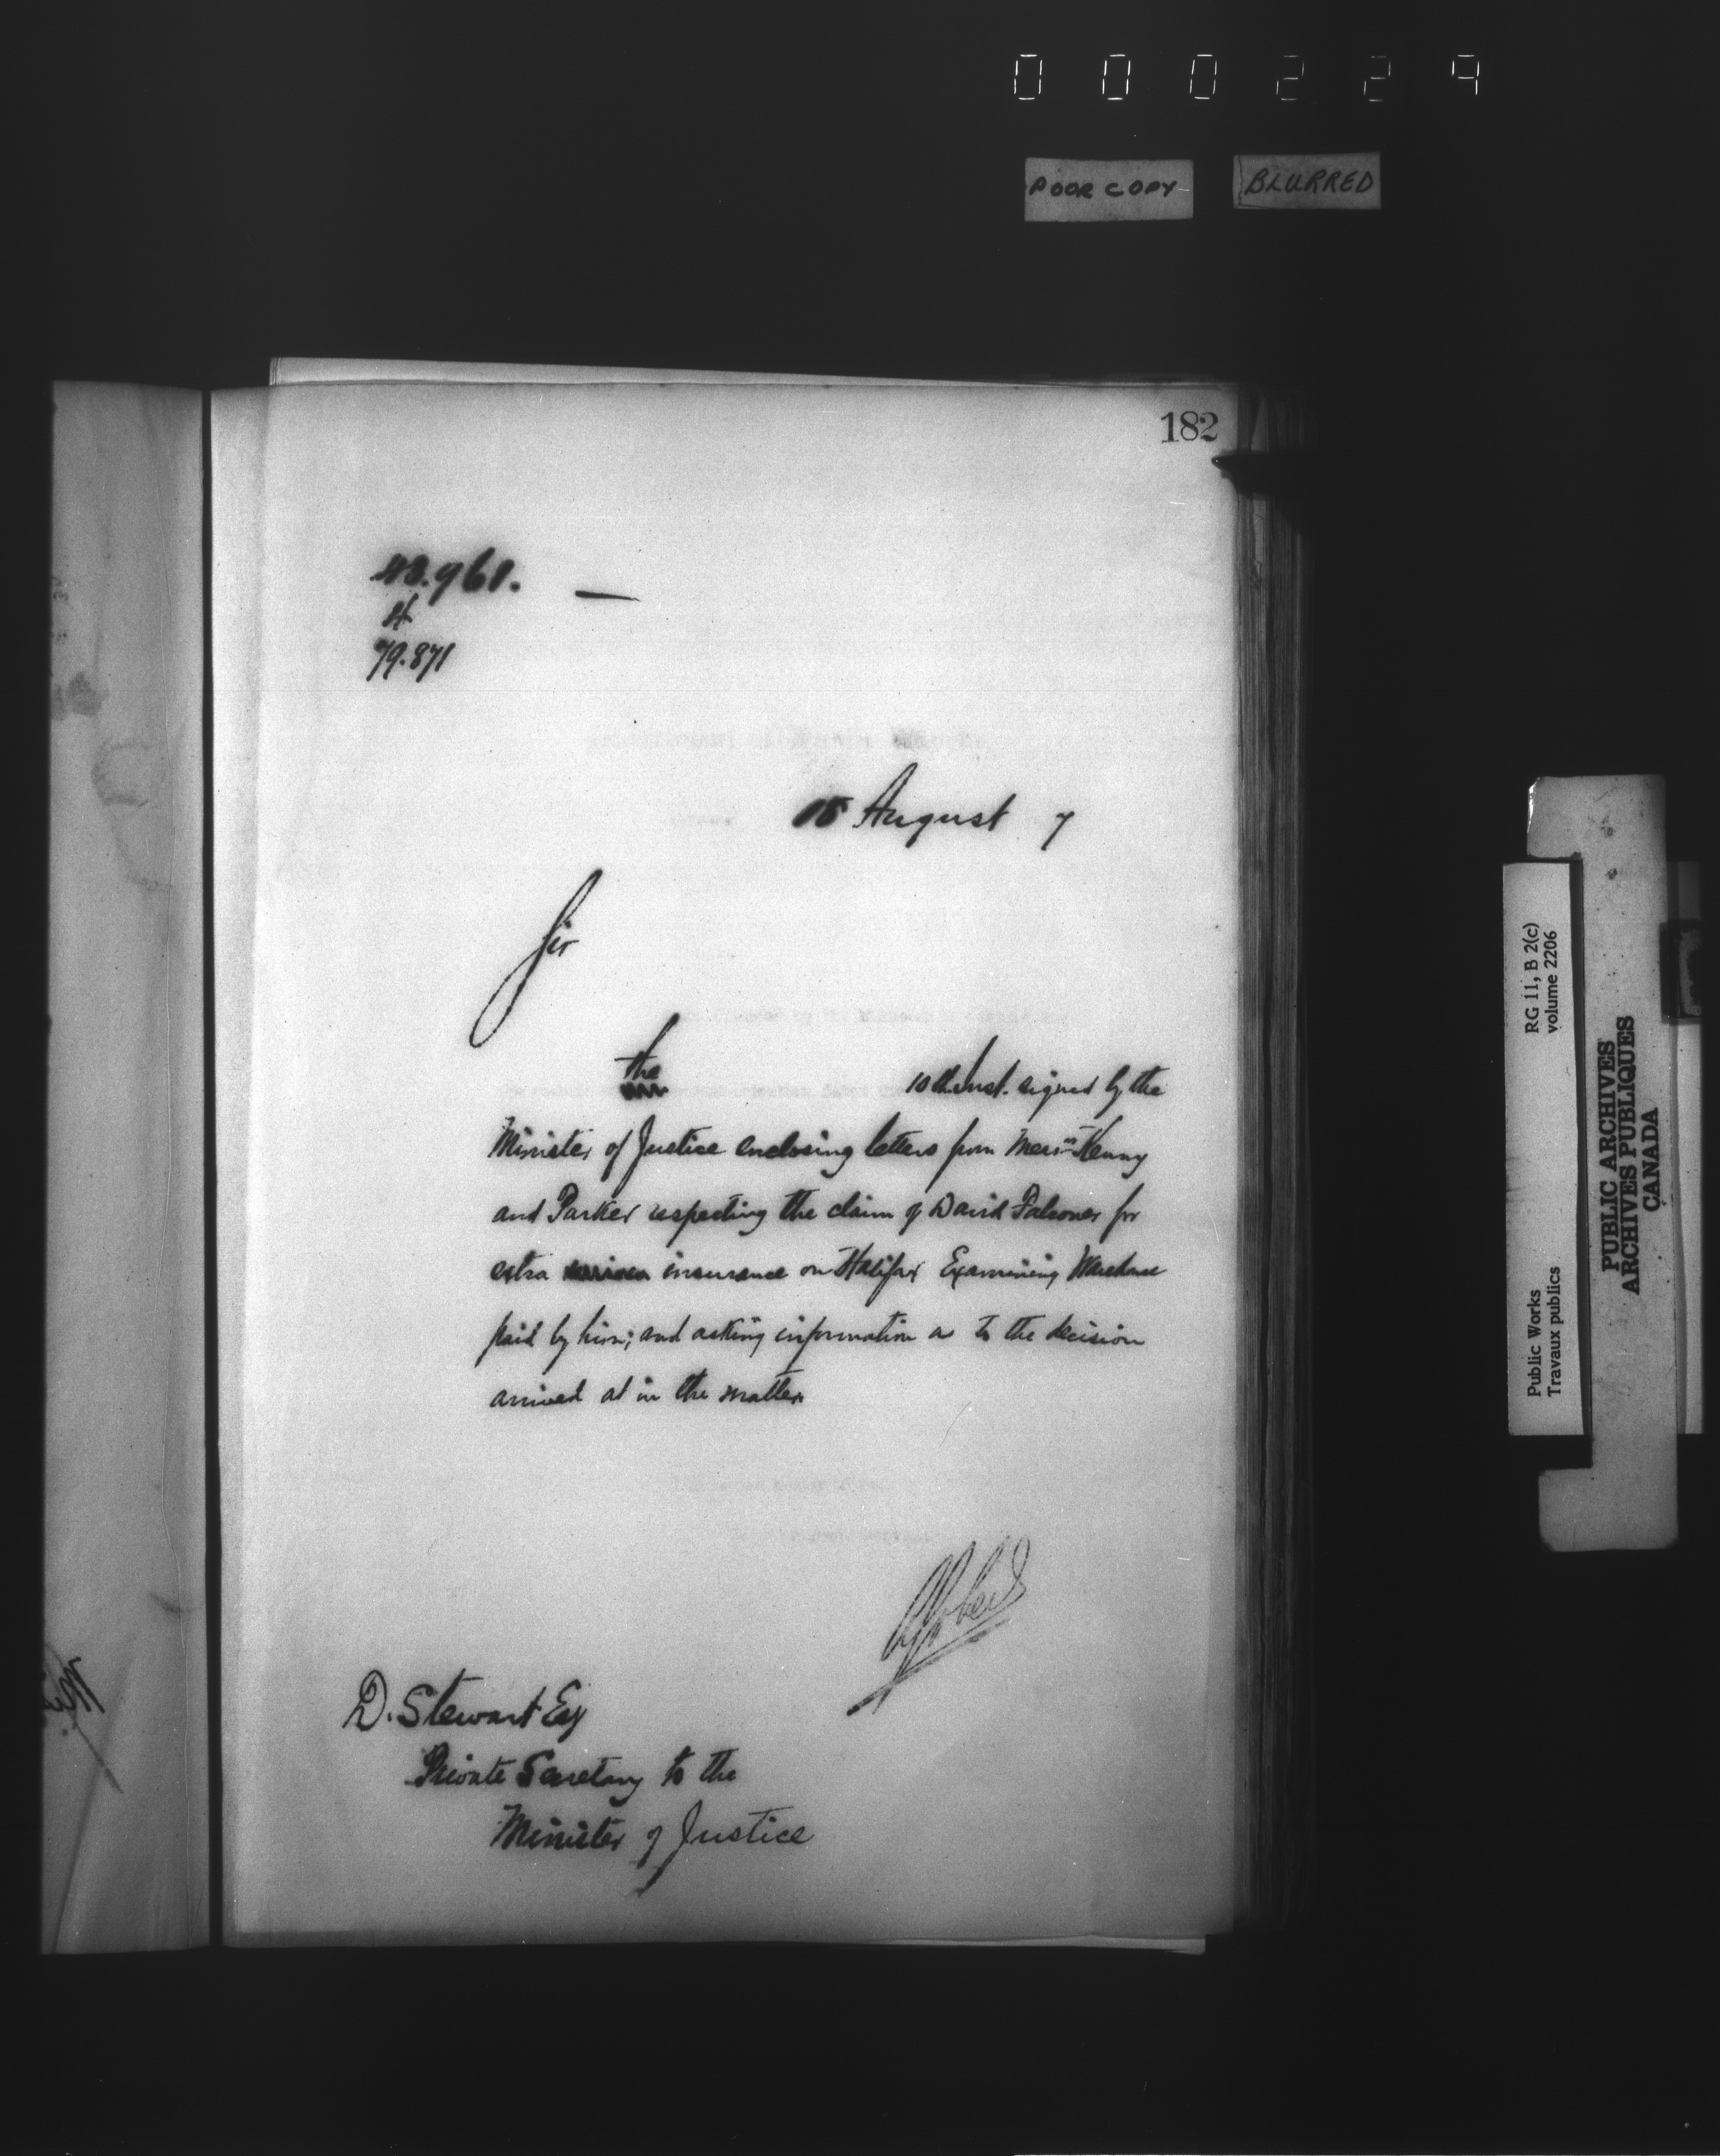 000229
POOR COPY
BLURRED
182
43.961.
79.871
15 August 7
Sir
the
10th Inst. signed by the
Minister of Justice enclosing letters from Messrs Kenny
and Parker respecting the claim of David Falconer for
extra insurance on Halifax Examining Warehouse
paid by him; and asking information as to the decision
arrived at in the matter.
D. Stewart Esq
Private Secretary to the
Minister of Justice
Public Works
Travaux publics
RG 11, B 2(c)
volume 2206
PUBLIC ARCHIVES
ARCHIVES PUBLIQUES
CANADA